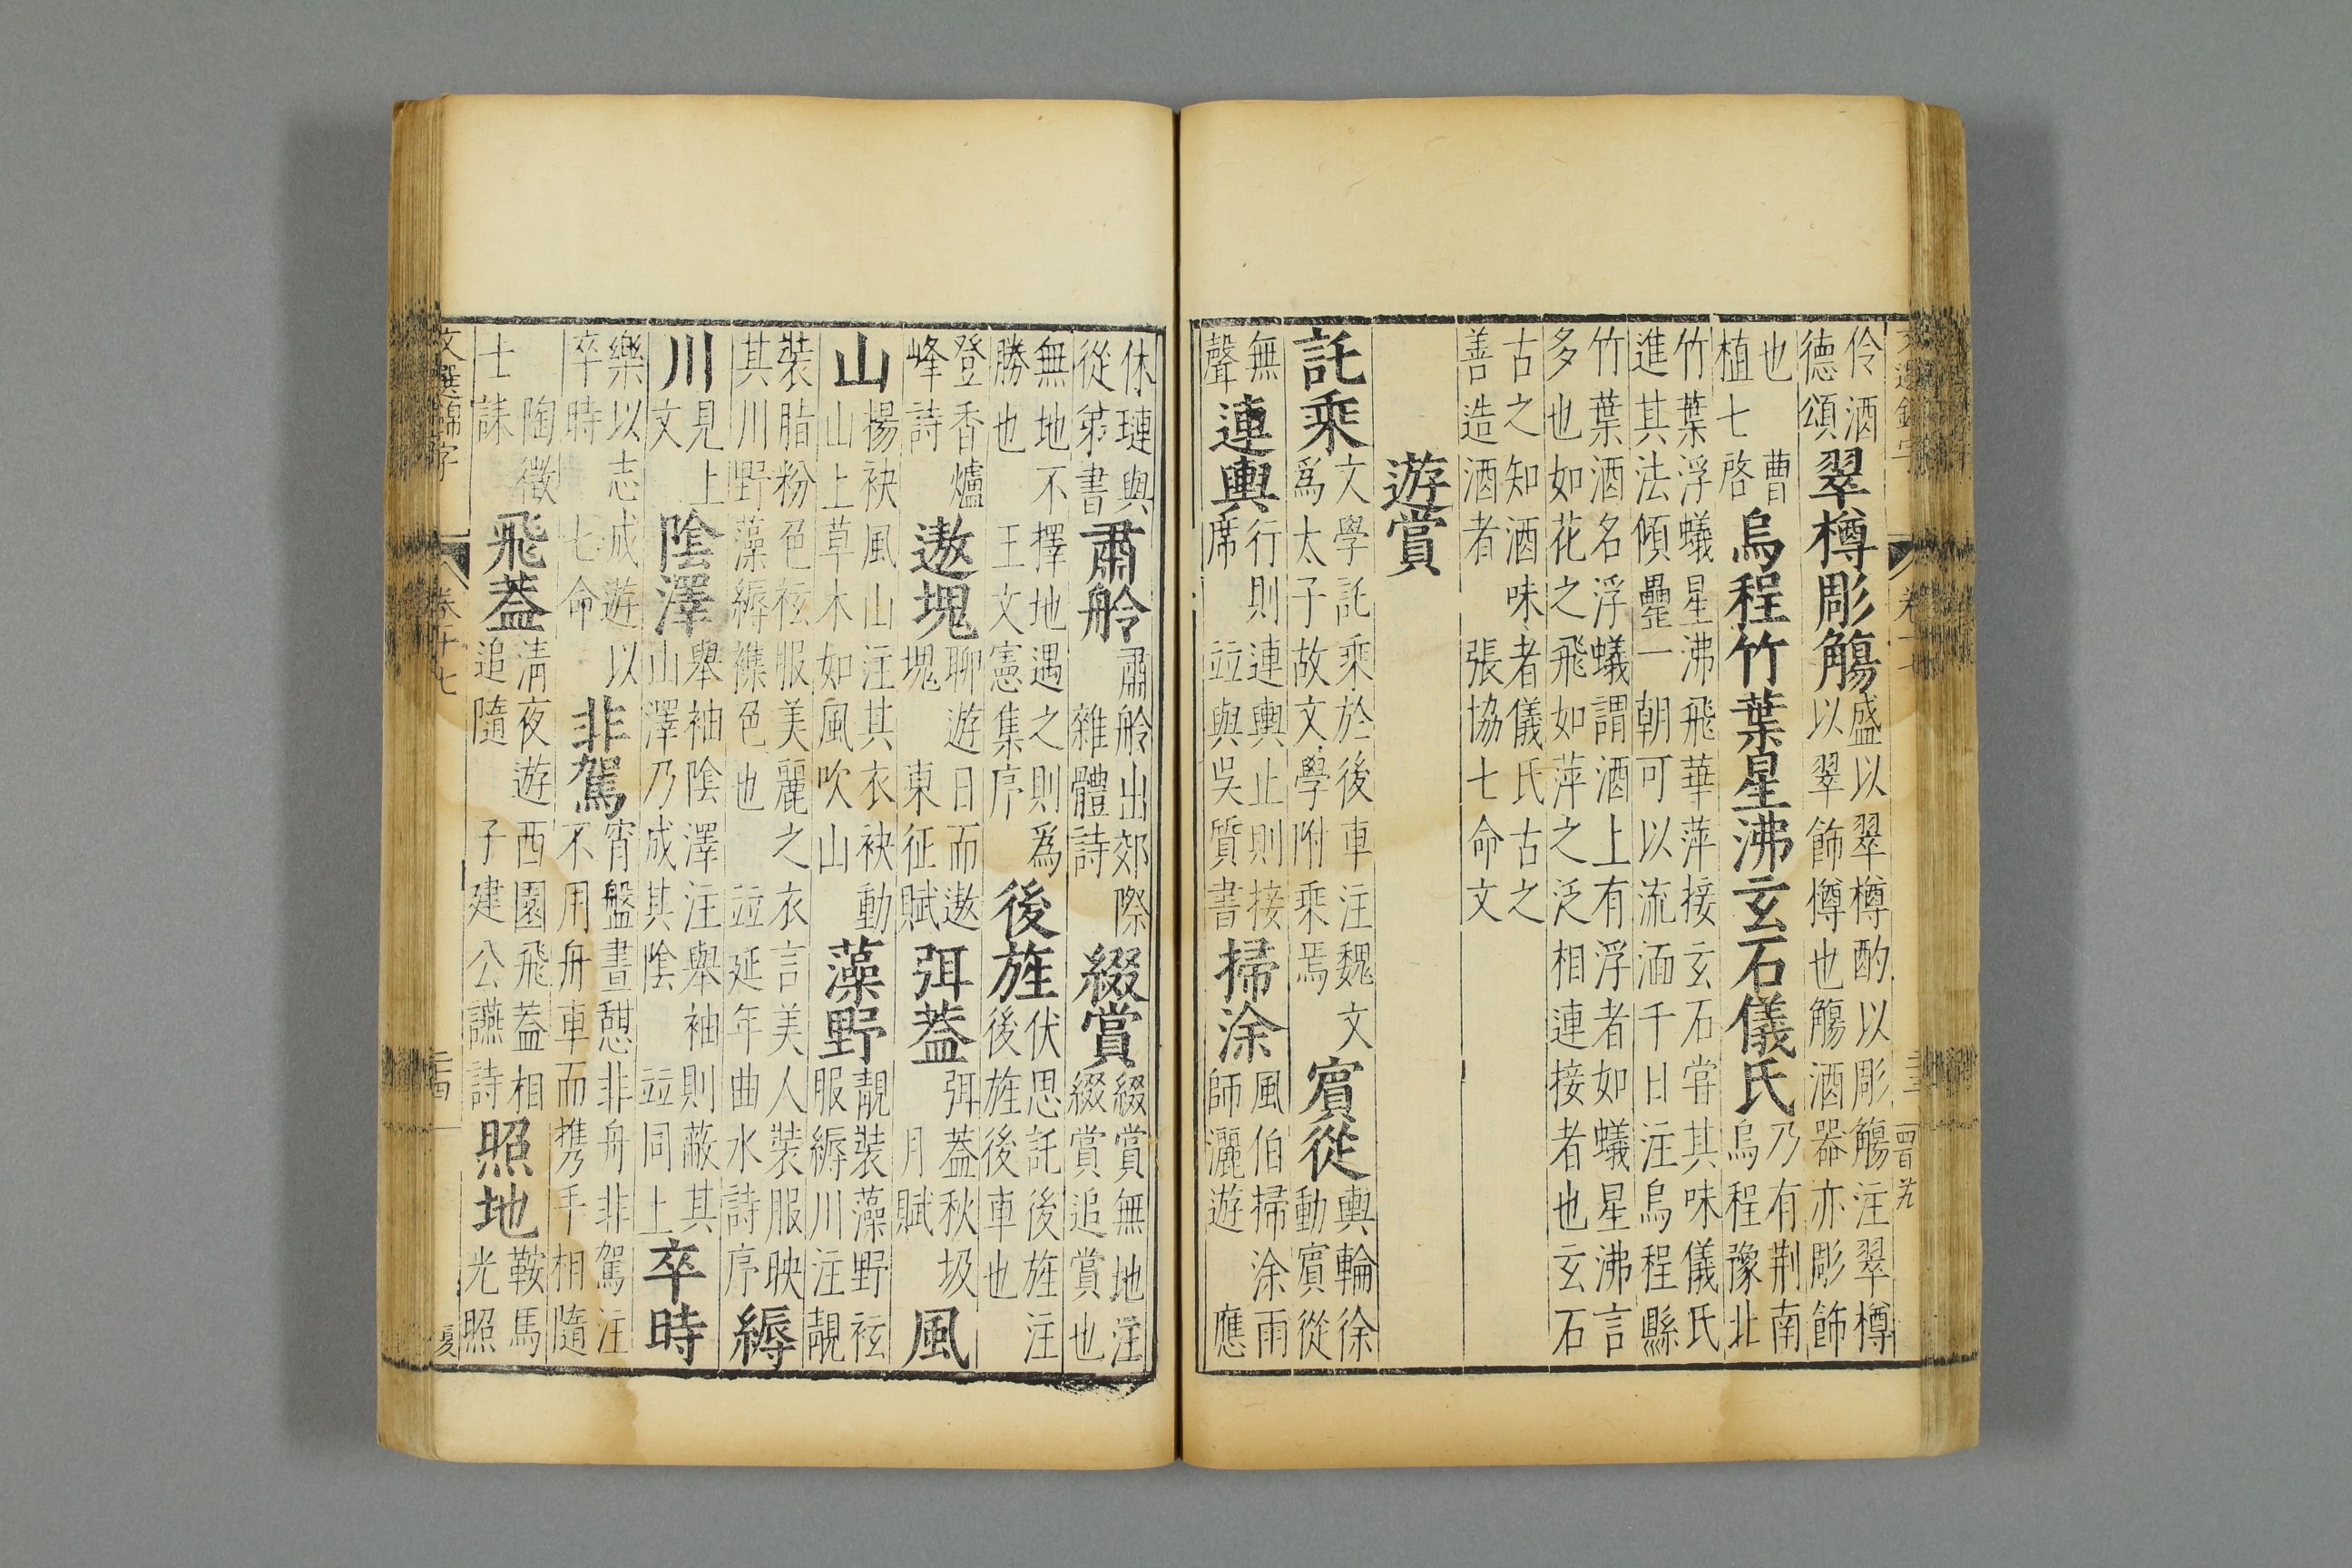 伶酒德頌翠樽彫觴盛以翠樽酌以彫觴注翠樽以翠飾樽也觴酒器亦彫飾
也 曹植七啓烏程竹葉星沸玄石儀氏乃有荆南烏程豫北
竹葉浮蟻星沸飛華萍接玄石甞其味儀氏進其法傾罍一朝可以流湎千日注烏程縣
竹葉酒名浮蟻謂酒上有浮者如蟻星沸言多也如花之飛如萍之泛相連接者也玄石
古之知酒味者儀氏古之善造酒者 張協七命文
遊賞
託乘文學託乘於後車注魏文爲太子故文學附乘焉賓從輿輪徐動賓從
無聲連輿行則連輿止則接席 並與吳質書掃涂風伯掃涂雨師灑遊 應
休璉與從弟書肅舲肅舲出郊際 雜體詩綴賞綴賞無地注綴賞追賞也
無地不擇地遇之則爲勝也 王文憲集序後旌伏思託後旌注後旌後車也
登香爐峰詩遨塊聊遊日而遨塊 東征賦弭蓋弭蓋秋圾 月賦風
山揚袂風山注其衣袂動山上草木如風吹山藻野靚裝藻野袨服縟川注靚
裝脂粉色袨服美麗之衣言美人裝服映其川野藻縟襍色也 並延年曲水詩序縟
川見上文陰澤舉袖陰澤注舉袖則蔽其山澤乃成其陰 並同上卒時
樂以志成遊以卒時 七命非駕宵盤晝憇非舟非駕注不用舟車而携手相隨
陶徵士誄飛蓋清夜遊西園飛蓋相追隨 子建公讌詩照地鞍馬光照
文選錦字 卷十七 夏